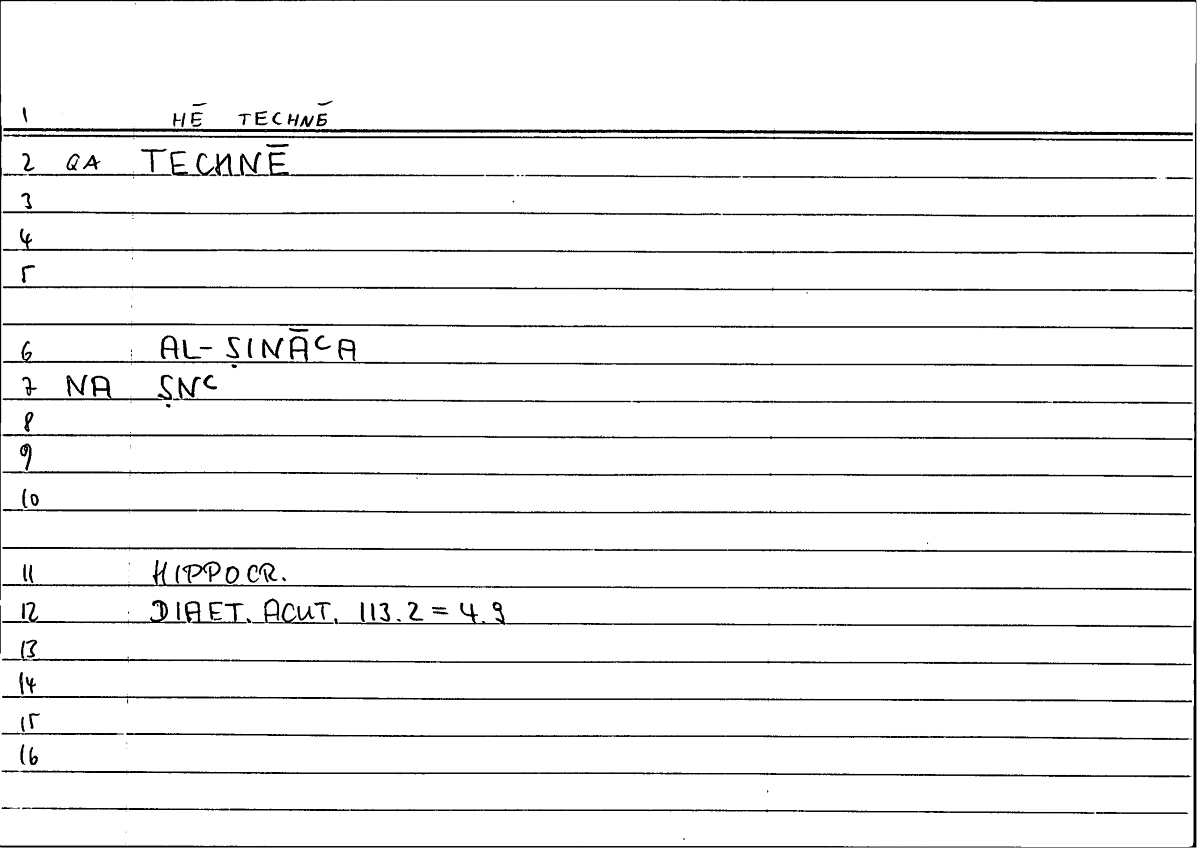 1 HĒ TECHNĒ
2 QA TECHNĒ
3
4
5
6 AL-ṢINĀʿA
7 NA ṢNʿ
8
9
10
11 HIPPOCR.
12 DIAET. ACUT. 113.2 = 4.9
13
14
15
16